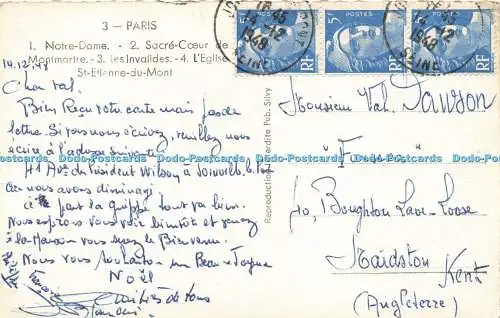 3 - PARIS
1. Notre-Dame. - 2. Sacré-Cœur de
Montmartre. - 3. Les Invalides. - 4. L'Eglise
St-Etienne-du-Mont
14.12.48
Cher Val.
Bien Reçu votre carte mais pas de
lettre. Si vous nous écrivez, veuillez nous
écrire à l'adresse suivante
41 Av. du Président Wilson à Joinville
car nous avons déménagé
ici part la grippe tout va bien.
Nous espérons vous voir bientôt et
à la Maison vous serez le Bienvenu.
Nous vous souhaitons un Beau et Joyeux
NOËL
Amitiés de tous
Reproduction Interdite Pub. Silvy
16-45
14-12
1948
SEINE
5F
POSTES
RF
5F
POSTES
RF
5F
POSTES
RF
14-12
1948
SEINE
Monsieur Val. Dawson
c/o, Boughton Loose
Maidston
Kent
(Angleterre)
Dodo-Postcards Dodo-Postcards Dodo-Postcards Dodo-Postcards